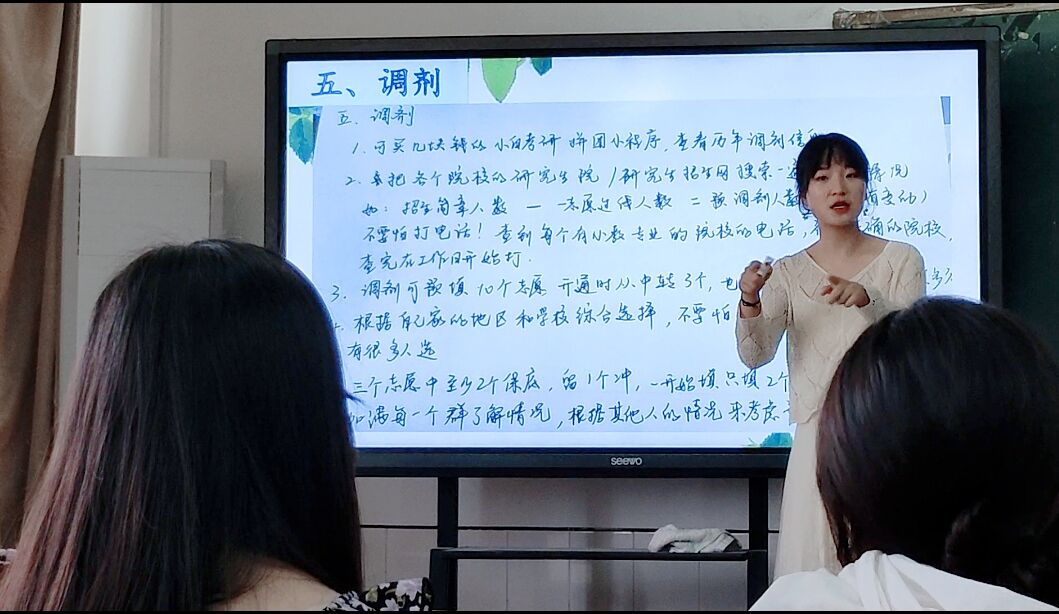 五、调剂
五. 调剂
1. 可买几块钱的小白考研拼团小程序，查看历年调剂信
2. 去把各个院校的研究生院/研究生招生网搜索一 情况
如：招生简章人数 — 一志愿过线人数 = 预调剂人数 变动）
不要怕打电话！查到每个有小数专业的院校的电话， 确的院校，
查完在工作日开始打.
3. 调剂可预填10个志愿 开通时从中转3个，也
根据自己家的地区和学校综合选择，不要怕
有很多人选
三个志愿中至少2个保底，留1个冲，一开始填只填2个
加满每一个群了解情况，根据其他人的情况来考虑
seewo